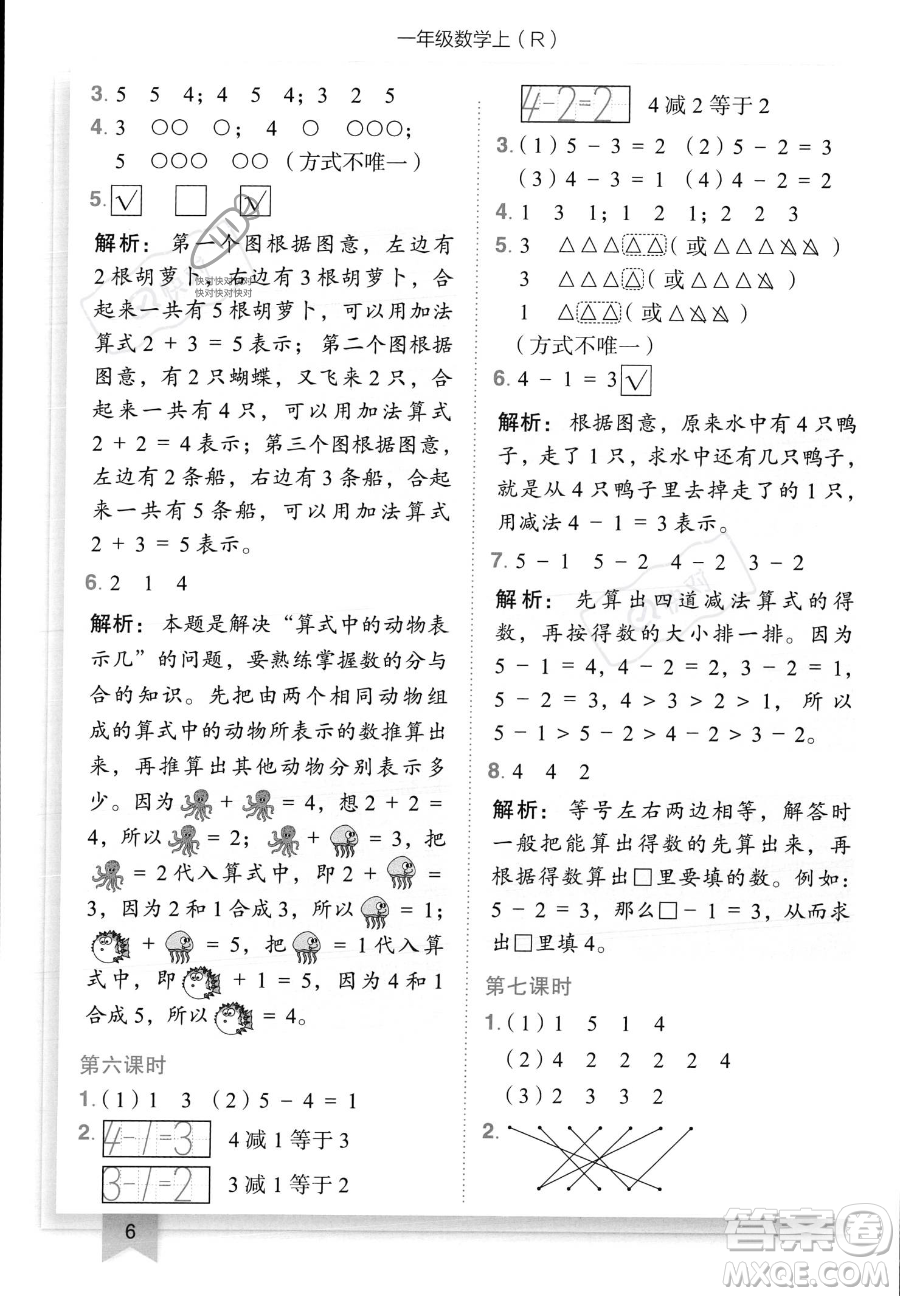 一年级数学上(R)
3. 5 5 4; 4 5 1; 3 2 5
4. 3 ○○ ○; 4 ○ ○○○;
5 ○○○ ○○(方式不唯一)
5. ☑ □ ☑
解析: 第一个图根据图意, 左边有
2根胡萝卜, 右边有3根胡萝卜, 合
起来一共有5根胡萝卜, 可以用加法
算式2 + 3 = 5表示; 第二个图根据
图意, 有2只蝴蝶, 又飞来2只, 合
起来一共有4只, 可以用加法算式
2 + 2 = 4表示; 第三个图根据图意,
左边有2条船, 右边有3条船, 合起
来一共有5条船, 可以用加法算式
2 + 3 = 5表示。
快对快对快对
快对快对快对
6. 2 1 4
解析: 本题是解决“算式中的动物表
示几”的问题, 要熟练掌握数的分与
合的知识。先把由两个相同动物组
成的算式中的动物所表示的数推算出
来, 再推算出其他动物分别表示多
少。因为 + = 4, 想2 + 2 =
4, 所以 = 2; + = 3, 把
= 2代入算式中, 即2 + =
3, 因为2和1合成3, 所以 = 1;
+ = 5, 把 = 1代入算
式中, 即 + 1 = 5, 因为4和1
合成5, 所以 = 4。
第六课时
1. (1) 1 3 (2) 5 - 4 = 1
2. 4-1=3 4减1等于3
3-1=2 3减1等于2
6
4-2=2 4减2等于2
3. (1) 5 - 3 = 2 (2) 5 - 2 = 3
(3) 4 - 3 = 1 (4) 4 - 2 = 2
4. 1 3 1; 1 2 1; 2 2 3
5. 3 △△△△△(或△△△△△)
3 △△△△(或△△△△)
1 △△△(或△△△)
(方式不唯一)
6. 4 - 1 = 3 ☑
解析: 根据图意, 原来水中有4只鸭
子, 走了1只, 求水中还有几只鸭子,
就是从4只鸭子里去掉走了的1只,
用减法4 - 1 = 3表示。
7. 5 - 1 5 - 2 4 - 2 3 - 2
解析: 先算出四道减法算式的得
数, 再按得数的大小排一排。因为
5 - 1 = 4, 3 - 2 = 1, 4 - 2 = 2,
5 - 2 = 3, 4 > 3 > 2 > 1, 所以
5 - 1 > 5 - 2 > 4 - 2 > 3 - 2。
8. 4 4 2
解析: 等号左右两边相等, 解答时
一般把能算出得数的先算出来, 再
根据得数算出□里要填的数。例如:
5 - 2 = 3, 那么□ - 1 = 3, 从而得
出□里填4。
第七课时
1. (1) 1 5 1 4
(2) 4 2 2 2 2 4
(3) 2 3 3 2
2.
答案圈
MXQE.COM